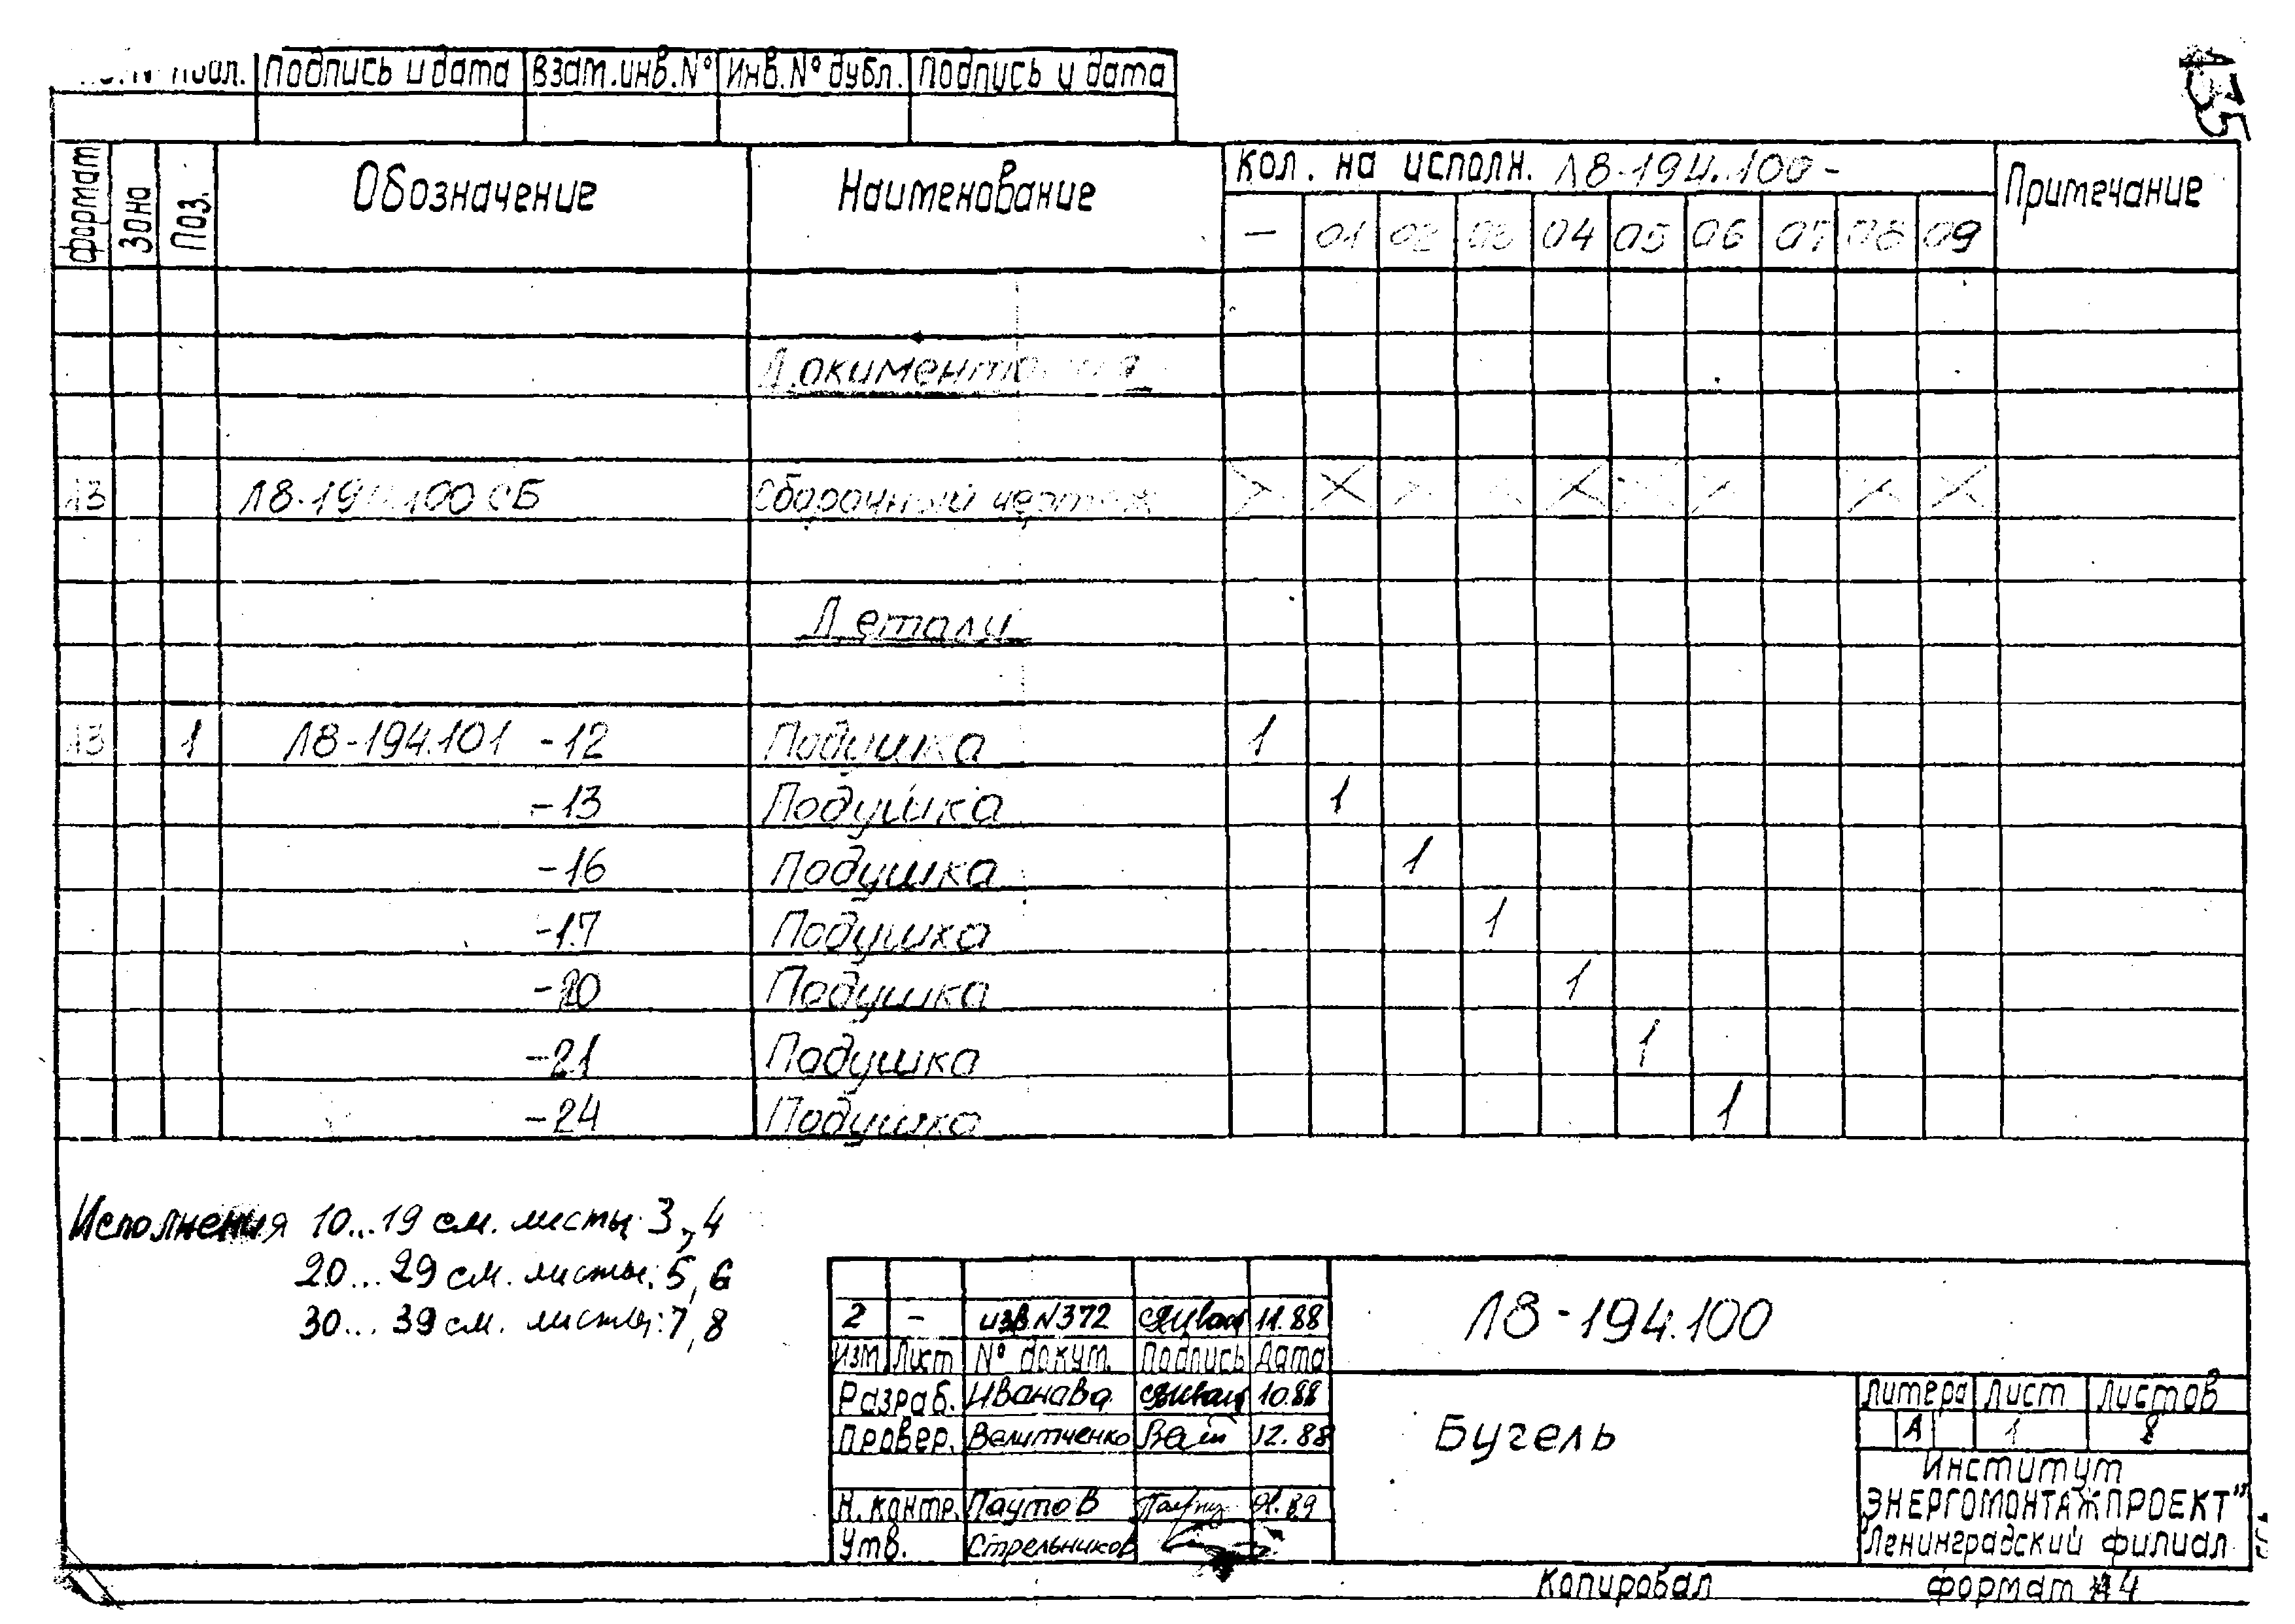 Подпись и дата Взам.инв.№ Инв.№ дубл. Подпись и дата
135
формат Зона Поз. Обозначение Наименование Кол. на исполн. Л8-194.100- Примечание
— 01 02 03 04 05 06 07 08 09
Документация
А3 Л8-194.100 СБ Сборочный чертеж
Детали
А3 1 Л8-194.101 -12 Подушка 1
-13 Подушка 1
-16 Подушка 1
-17 Подушка 1
-20 Подушка 1
-21 Подушка 1
-24 Подушка 1
Исполнения 10...19 см. листы 3,4
20...29 см. листы: 5,6
30...39 см. листы: 7,8
2 – изв.N372 11.88
Изм Лист № докум. Подпись Дата
Л8-194.100
Разраб. Иванова 10.88
Провер. Велитченко 12.88
Н.контр. Паутов 01.89
Утв. Стрельников
Бугель
Литера Лист Листов
А 1 8
Институт
ЭНЕРГОМОНТАЖПРОЕКТ"
Ленинградский филиал
Копировал формат А4